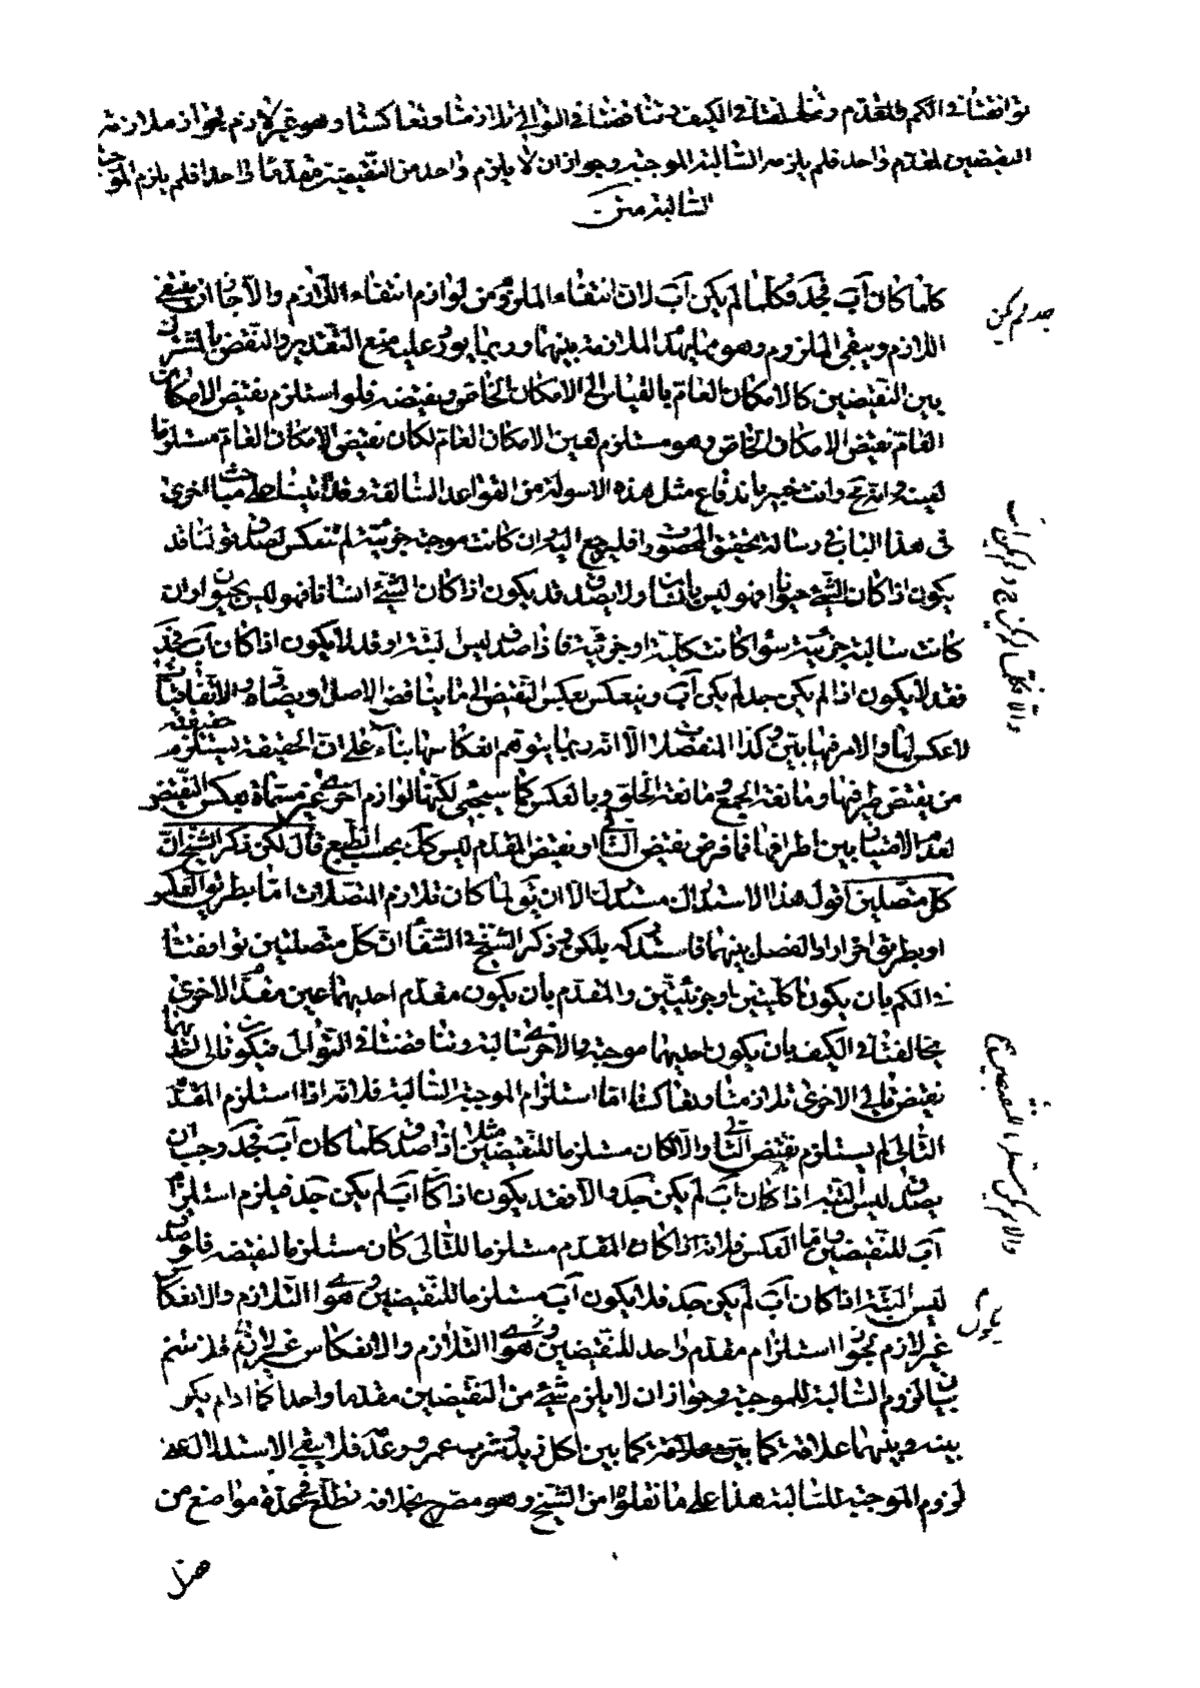 توافقتا فى الكم والمقدم وتخالفتا فى الكيف وتناقضتا فى التوالى تلازمتا وتعاكستا وهو غير لازم لجواز ملازمة
النقيضين لمقدم واحد فلم يلزمه السالبة الموجبة وجواز ان لا يلزم واحد من النقيضين مقدما واحدا فلم يلزم الموجبة
السالبة متن
كلما كان آب فجد فكلما لم يكن آب لان انتفاء الملزوم من لوازم انتفاء اللازم والا جاز ان ينتفى
جد لم يكن
اللازم ويبقى الملزوم وهو مما يهدم الملازمة بينهما وربما يورد عليه منع التقدير والنقض بالمشترك
بين النقيضين كالامكان العام بالقياس الى الامكان الخاص ونقيضه فلو استلزم نقيض الامكان
العام نقيض الامكان الخاص وهو مستلزم لعين الامكان العام لكان نقيض الامكان العام مستلزما
لعينه وانه مح وانت خبير باندفاع مثل هذه الاسولة من القواعد السالفة وقد اشبعنا مباحث اخرى
فى هذا الباب فى رسالة تحقيق المحصورات فليرجع اليها وان كانت موجبة جزئية لم تنعكس لصدق قولنا قد
يكون اذا كان الشئ حيوانا فهو ليس بانسان ولا يصدق قد يكون اذا كان الشئ انسانا فهو ليس بحيوان وان
كانت سالبة جزئية سواء كانت كلية او جزئية فاذا صدق ليس البتة او قد لا يكون اذا كان آب فجد
فقد لا يكون اذا لم يكن جد لم يكن آب وينعكس بعكس النقيض الى ما يناقض الاصل او يضاده والاتفاقيات
لا عكس لها والامر فيها بين وكذا المنفصلات الا انه ربما يتوهم انعكاسها بناء على ان الحقيقية يستلزم حقيقية
من نقيض طرفيها ومانعة الجمع مانعة الخلو وبالعكس كما سيجئ لكنها لوازم اخرى غير مسماة بعكس النقيض
لعدم الامتياز بين اطرافها فما فرض نقيض التالى او نقيض المقدم ليس كك بحسب الطبع قال لكن ذكر الشيخ ان
كل متصلين اقول هذا الاستدراك مستدرك الا ان يقول لما كان تلازم المتصلات اما بطريق العكس
او بطريق اخر اراد الفصل بينهما فاستدركه بلكن وذكر الشيخ فى الشفاء ان كل متصلتين توافقتا
فى الكم بان يكونا كليتين او جزئيتين والمقدم بان يكون مقدم احديهما عين مقدم الاخرى
تخالفتا فى الكيف بان يكون احديهما موجبة والاخرى سالبة وتناقضتا فى التوالى فيكون تالى احديهما
نقيض تالى الاخرى تلازمتا وتعاكستا اما استلزام الموجبة السالبة فلانه اذا استلزم المقدم
التالى لم يستلزم نقيض التالى والا لكان مستلزما للنقيضين مثلا اذا صدق كلما كان آب فجد وجب ان
يصدق ليس البتة اذا كان آب لم يكن جد والا فقد يكون اذا كان آب لم يكن جد فيلزم استلزام
آب للنقيضين واما العكس فلانه اذا كان المقدم مستلزما للتالى كان مستلزما لنقيضه فلو صدق
ليس البتة اذا كان آب لم يكن جد فلا يكون آب مستلزما للنقيضين وهو التلازم والانعكاس
يكون
غير لازم لجواز استلزام مقدم واحد للنقيضين وهذا التلازم والانعكاس غير لازم فلا يتم
بيان لزوم السالبة للموجبة وجواز ان لا يلزم شئ من النقيضين مقدما واحدا كما اذا لم يكن
بينه وبينهما علاقة كما بين اكل زيد وشرب عمرو وعدمه فلا يبقى الاستدلال على
لزوم الموجبة للسالبة هذا على ما نقلوا من الشيخ وهو مصرح بخلافه تطلع فى عدة مواضع من